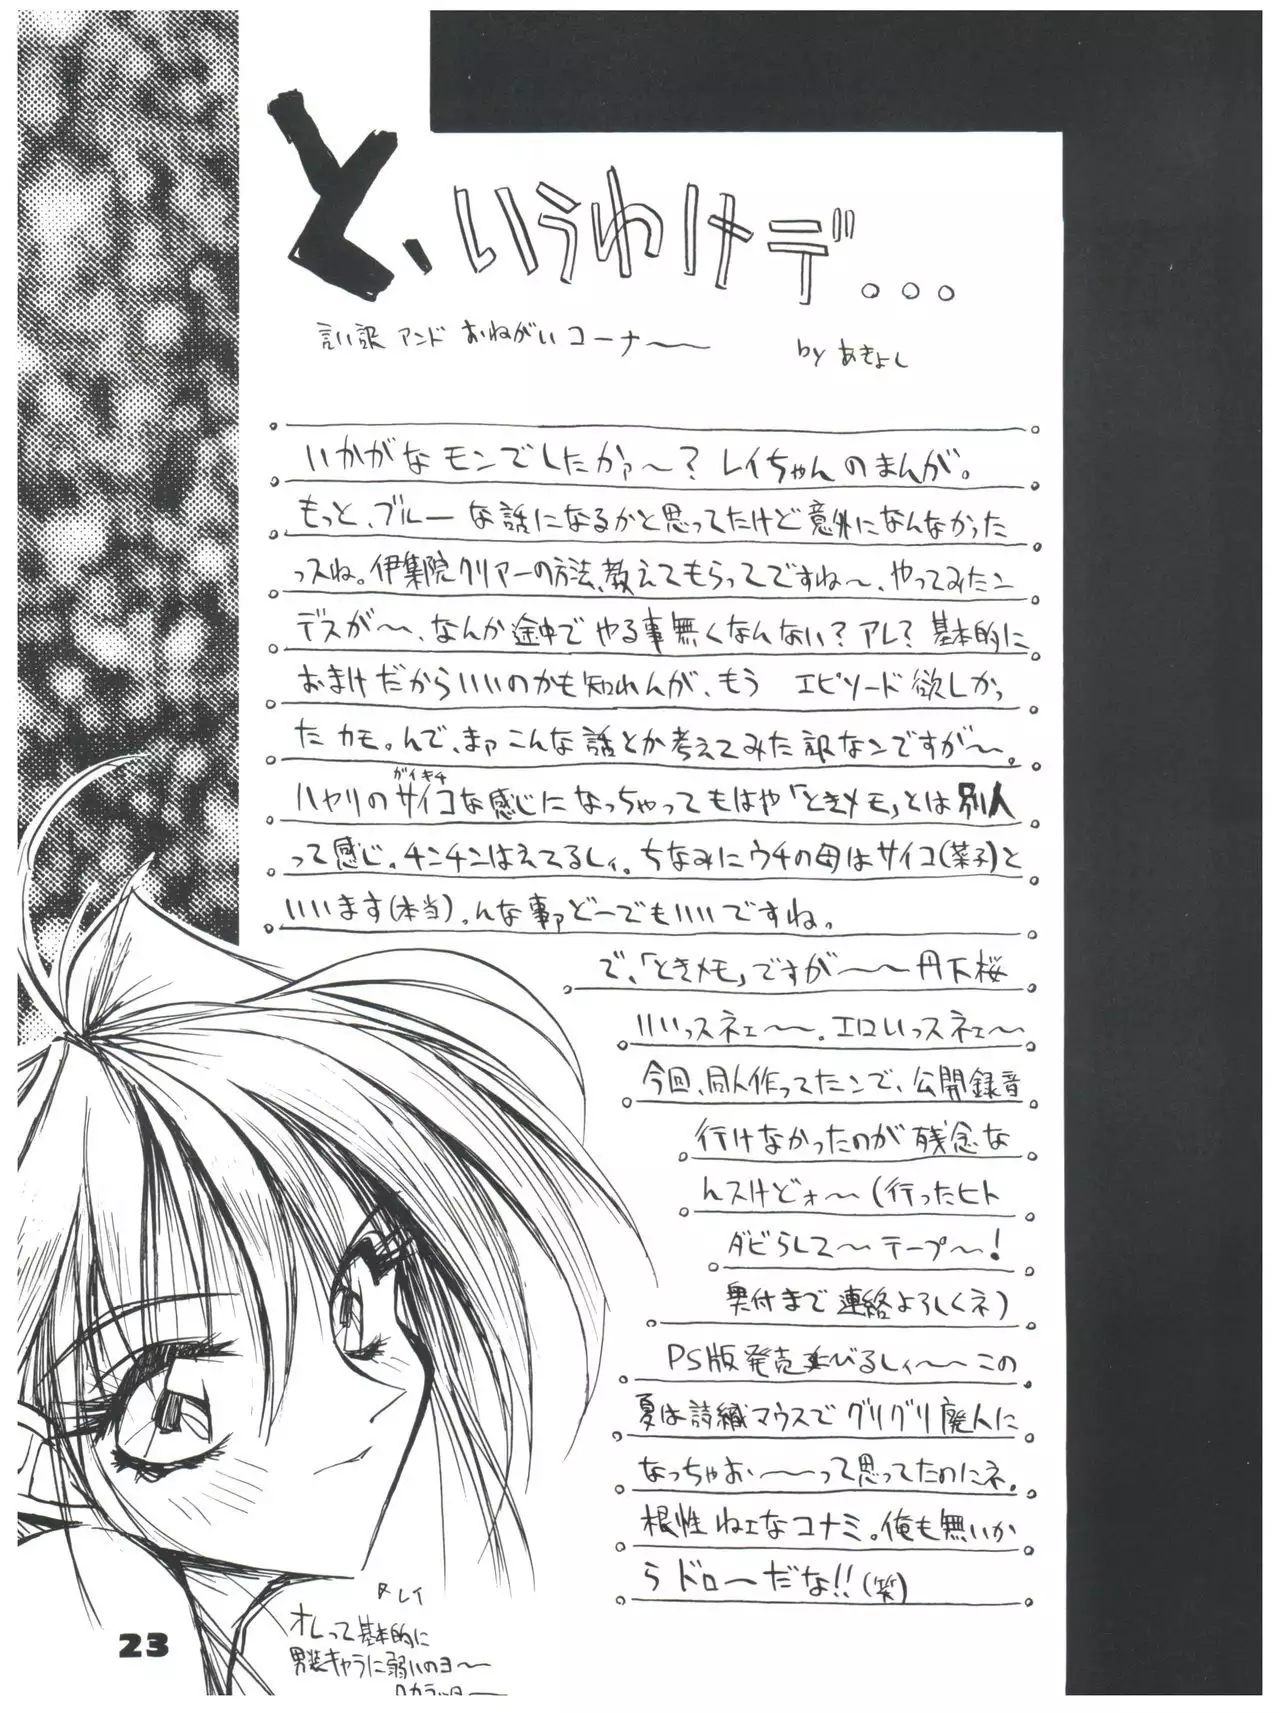 と、いうわけデ...
言い訳 アンド おねがい コーナ〜〜
by あきよし
いかがなモンでしたかァ〜？ レイちゃんのまんが。
もっと、ブルーな話になるかと思ってたけど意外になんなかった
っスね。伊集院クリアーの方法、教えてもらってですね〜、やってみたン
デスが〜、なんか途中でやる事無くなんない？アレ？ 基本的に
おまけだからいいのかも知れんが、もう エピソード欲しかっ
たカモ。んで、まァこんな話とか考えてみた訳なンですが〜。
ガイキチ
ハヤリのサイコな感じになっちゃってもはや「ときメモ」とは別人
って感じ。チンチンはえてるしィ。ちなみにウチの母はサイコ(菜子)と
いいます(本当)。んな事ァどーでもいいですね。
で、「ときメモ」ですが〜〜丹下桜
いいっスネェ〜〜。エロいっスネェ〜
今回、同人作ってたンで、公開録音
行けなかったのが残念な
んスけどォ〜(行ったヒト
ダビらして〜テープ〜！
奥付まで連絡よろしくネ)
PS版発売延びるしィ〜〜この
夏は詩織マウスでグリグリ廃人に
なっちゃおぃ〜〜って思ってたのにネ。
根性ねェなコナミ。俺も無いか
らドロ〜だな!!(笑)
レイ
オレって基本的に
男装キャラに弱いのヨ〜
23